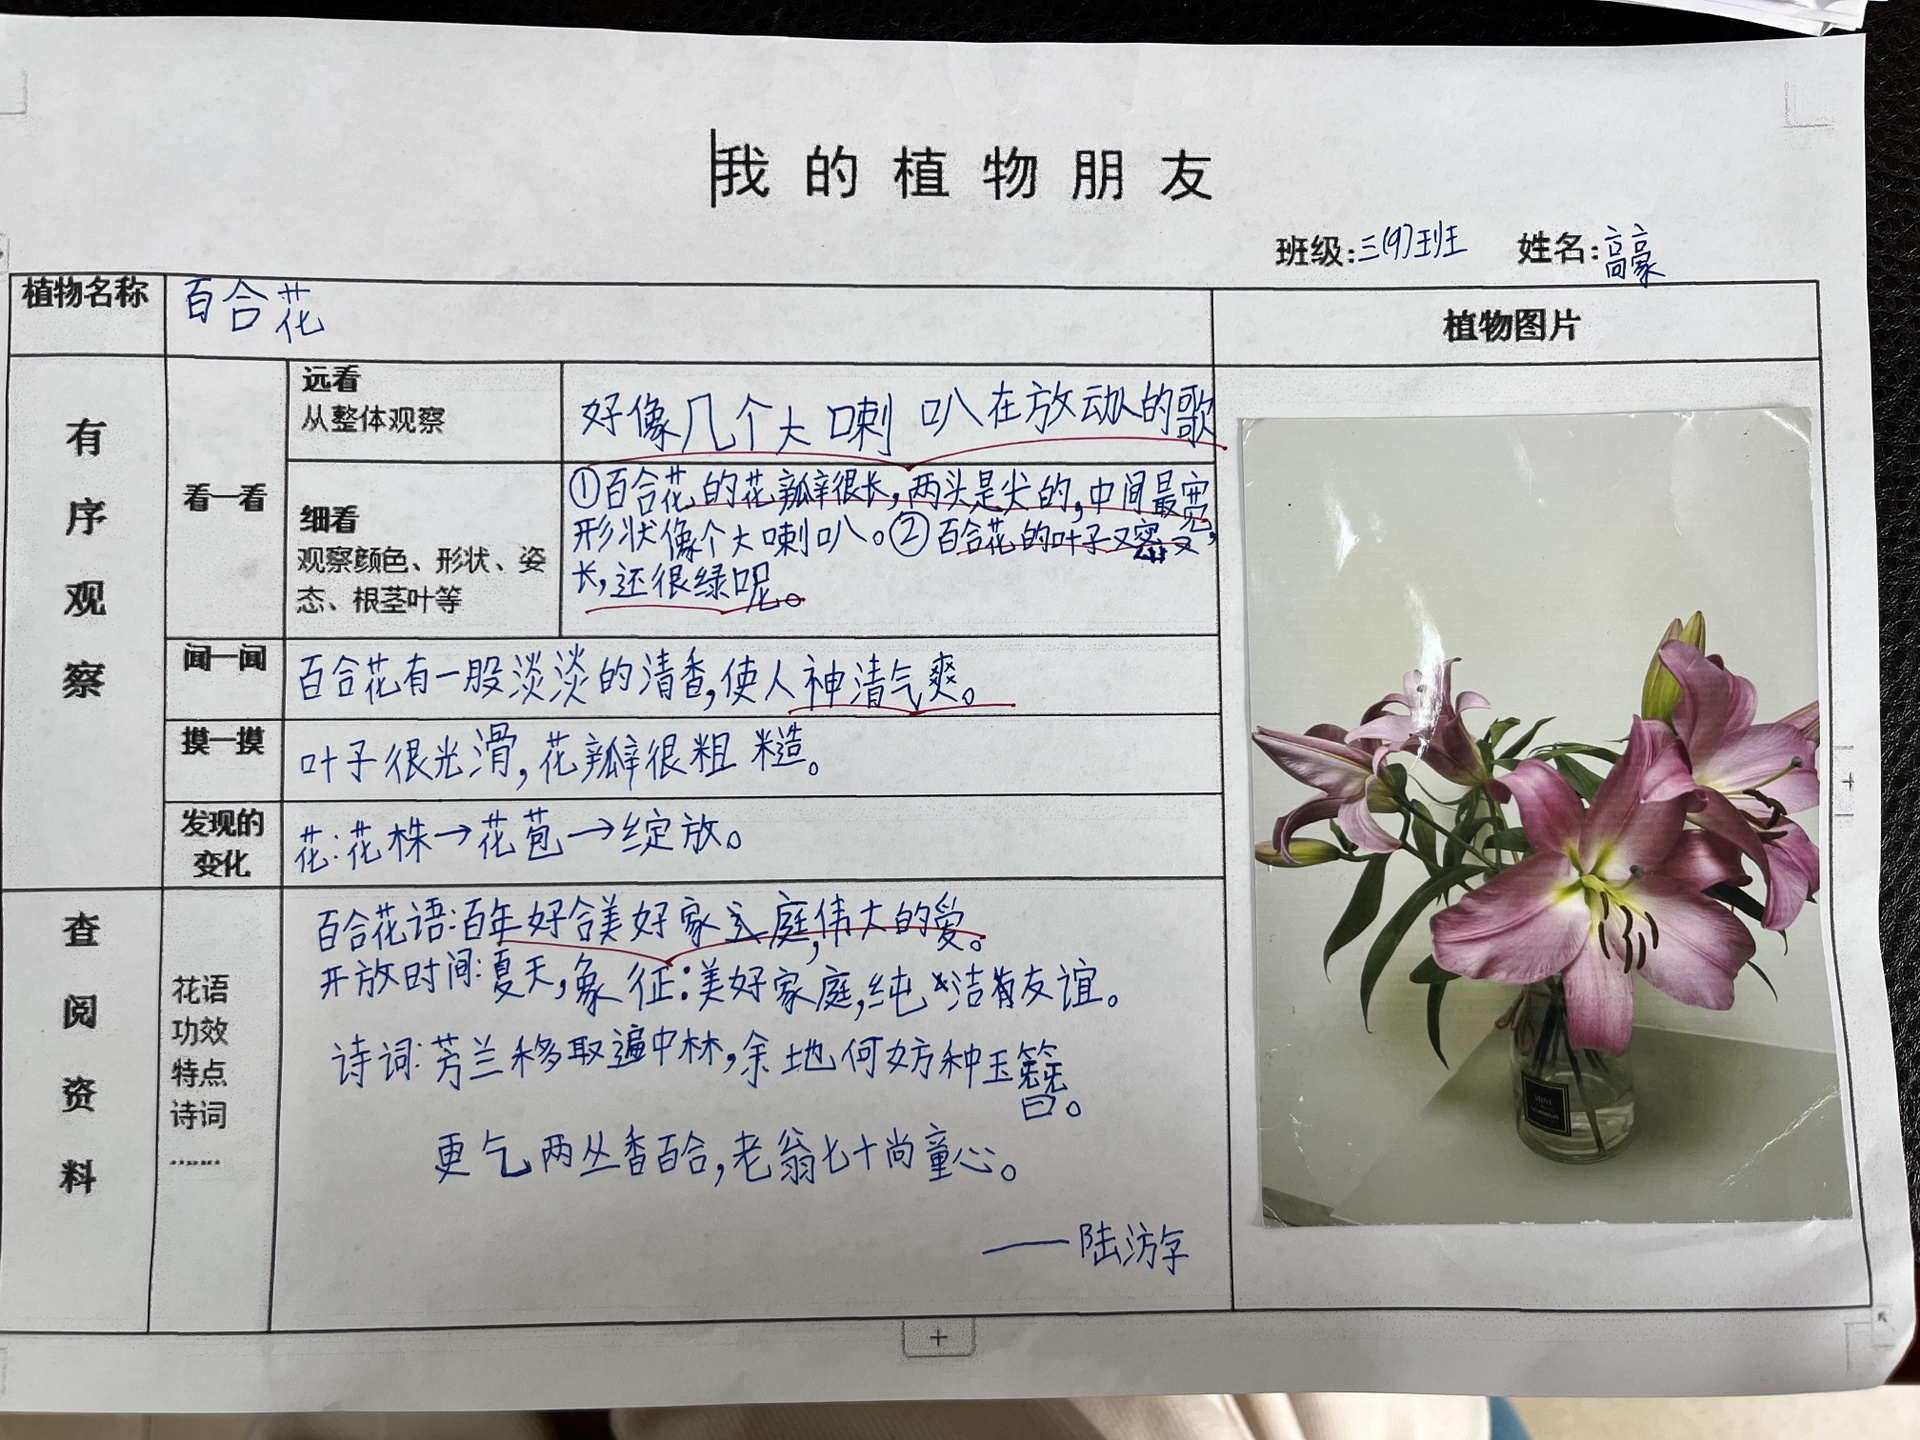 我的植物朋友
班级:三(9)班 姓名:高豪
植物名称 百合花 植物图片
有序观察
看一看
远看
从整体观察
好像几个大喇叭在放动人的歌
细看
观察颜色、形状、姿
态、根茎叶等
①百合花的花瓣很长,两头是尖的,中间最宽,
形状像个大喇叭。②百合花的叶子又密又
长,还很绿呢。
闻一闻 百合花有一股淡淡的清香,使人神清气爽。
摸一摸 叶子很光滑,花瓣很粗糙。
发现的
变化
花:花株→花苞→绽放。
查阅资料
花语
功效
特点
诗词
……
百合花语:百年好合美好家庭,伟大的爱。
开放时间:夏天,象征:美好家庭,纯洁友谊。
诗词:芳兰移取遍中林,余地何妨种玉簪。
更乞两丛香百合,老翁七十尚童心。
——陆游